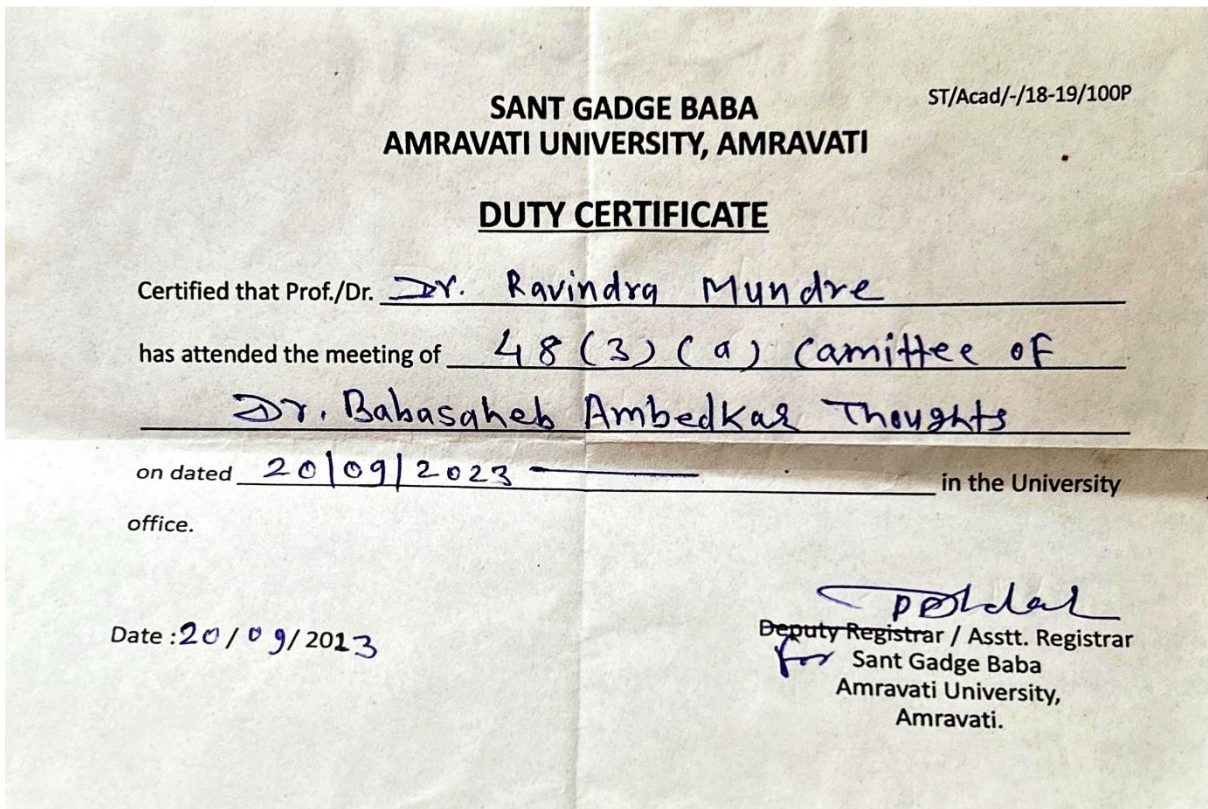 ST/Acad/-/18-19/100P
SANT GADGE BABA
AMRAVATI UNIVERSITY, AMRAVATI
DUTY CERTIFICATE
Certified that Prof./Dr. Dr. Ravindra Mundre
has attended the meeting of 48 (3) (a) Camittee of
Dr. Babasaheb Ambedkar Thoughts
on dated 20/09/2023 in the University
office.
Date : 20/09/2023
Deputy Registrar / Asstt. Registrar
for Sant Gadge Baba
Amravati University,
Amravati.